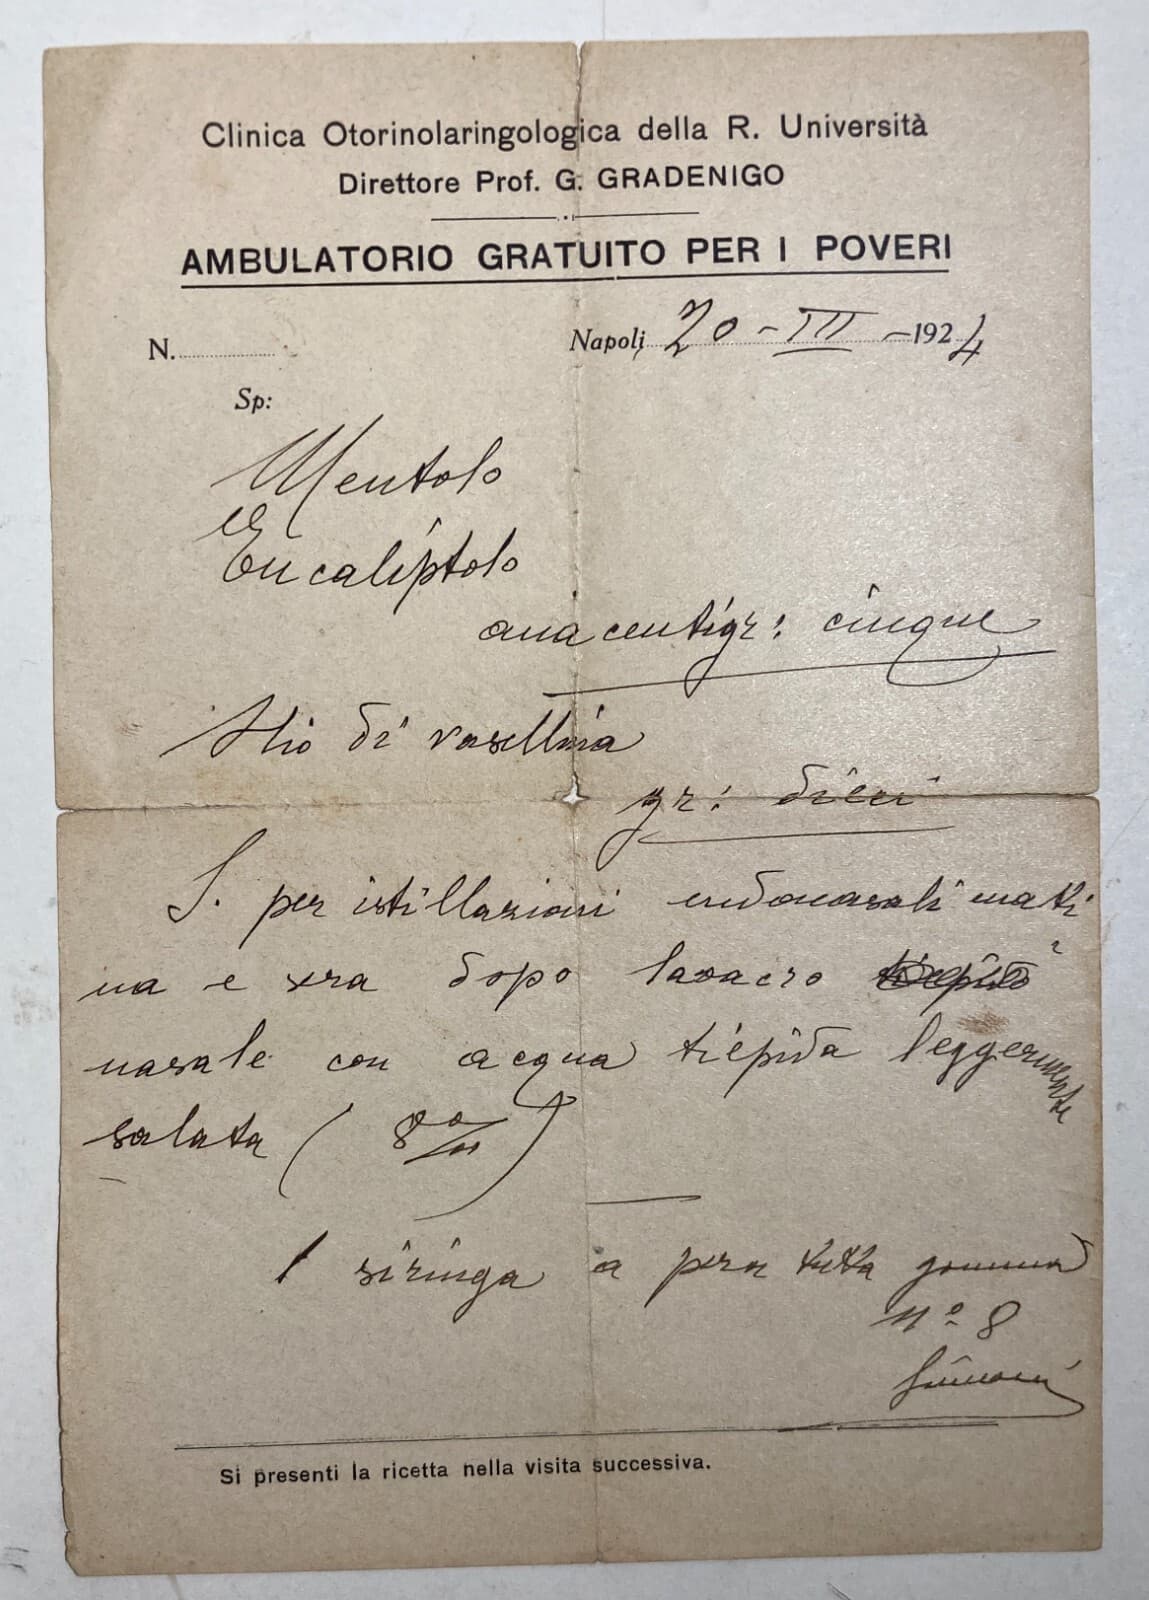 Clinica Otorinolaringologica della R. Università
Direttore Prof. G. GRADENIGO
AMBULATORIO GRATUITO PER I POVERI
N.
Napoli, 20 - III - 1924
Sp:
Mentolo
Eucaliptolo
ana centigr: cinque
Olio di vasellina
gr: dieci
S. per istillazioni endonasali matti
na e sera dopo lavacro
nasale con acqua tiepida leggermente
salata ( 8 ‰ )
1 siringa a pera tutta gomma
nº 8
Si presenti la ricetta nella visita successiva.